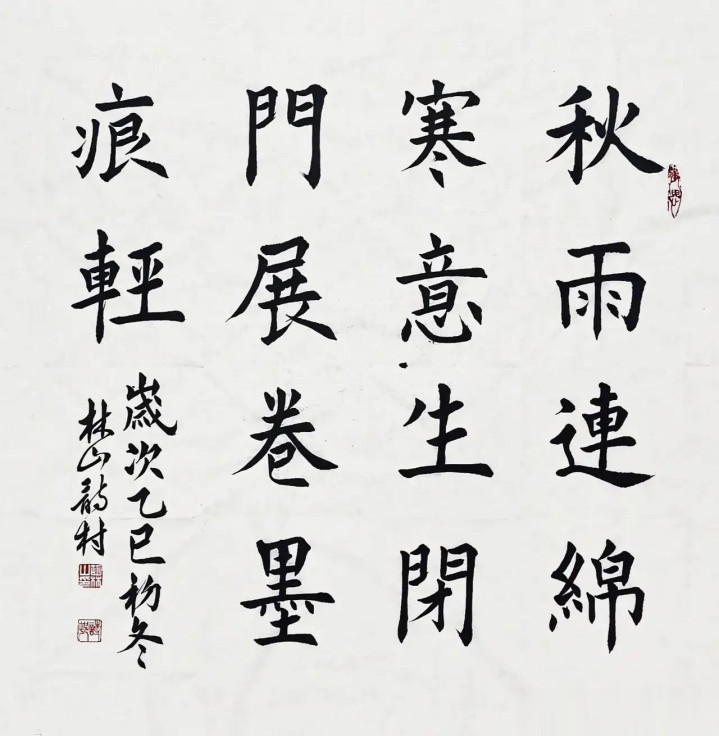 秋雨連綿
寒意生閉
門展卷墨
痕輕
歲次乙巳初冬
林山詩村